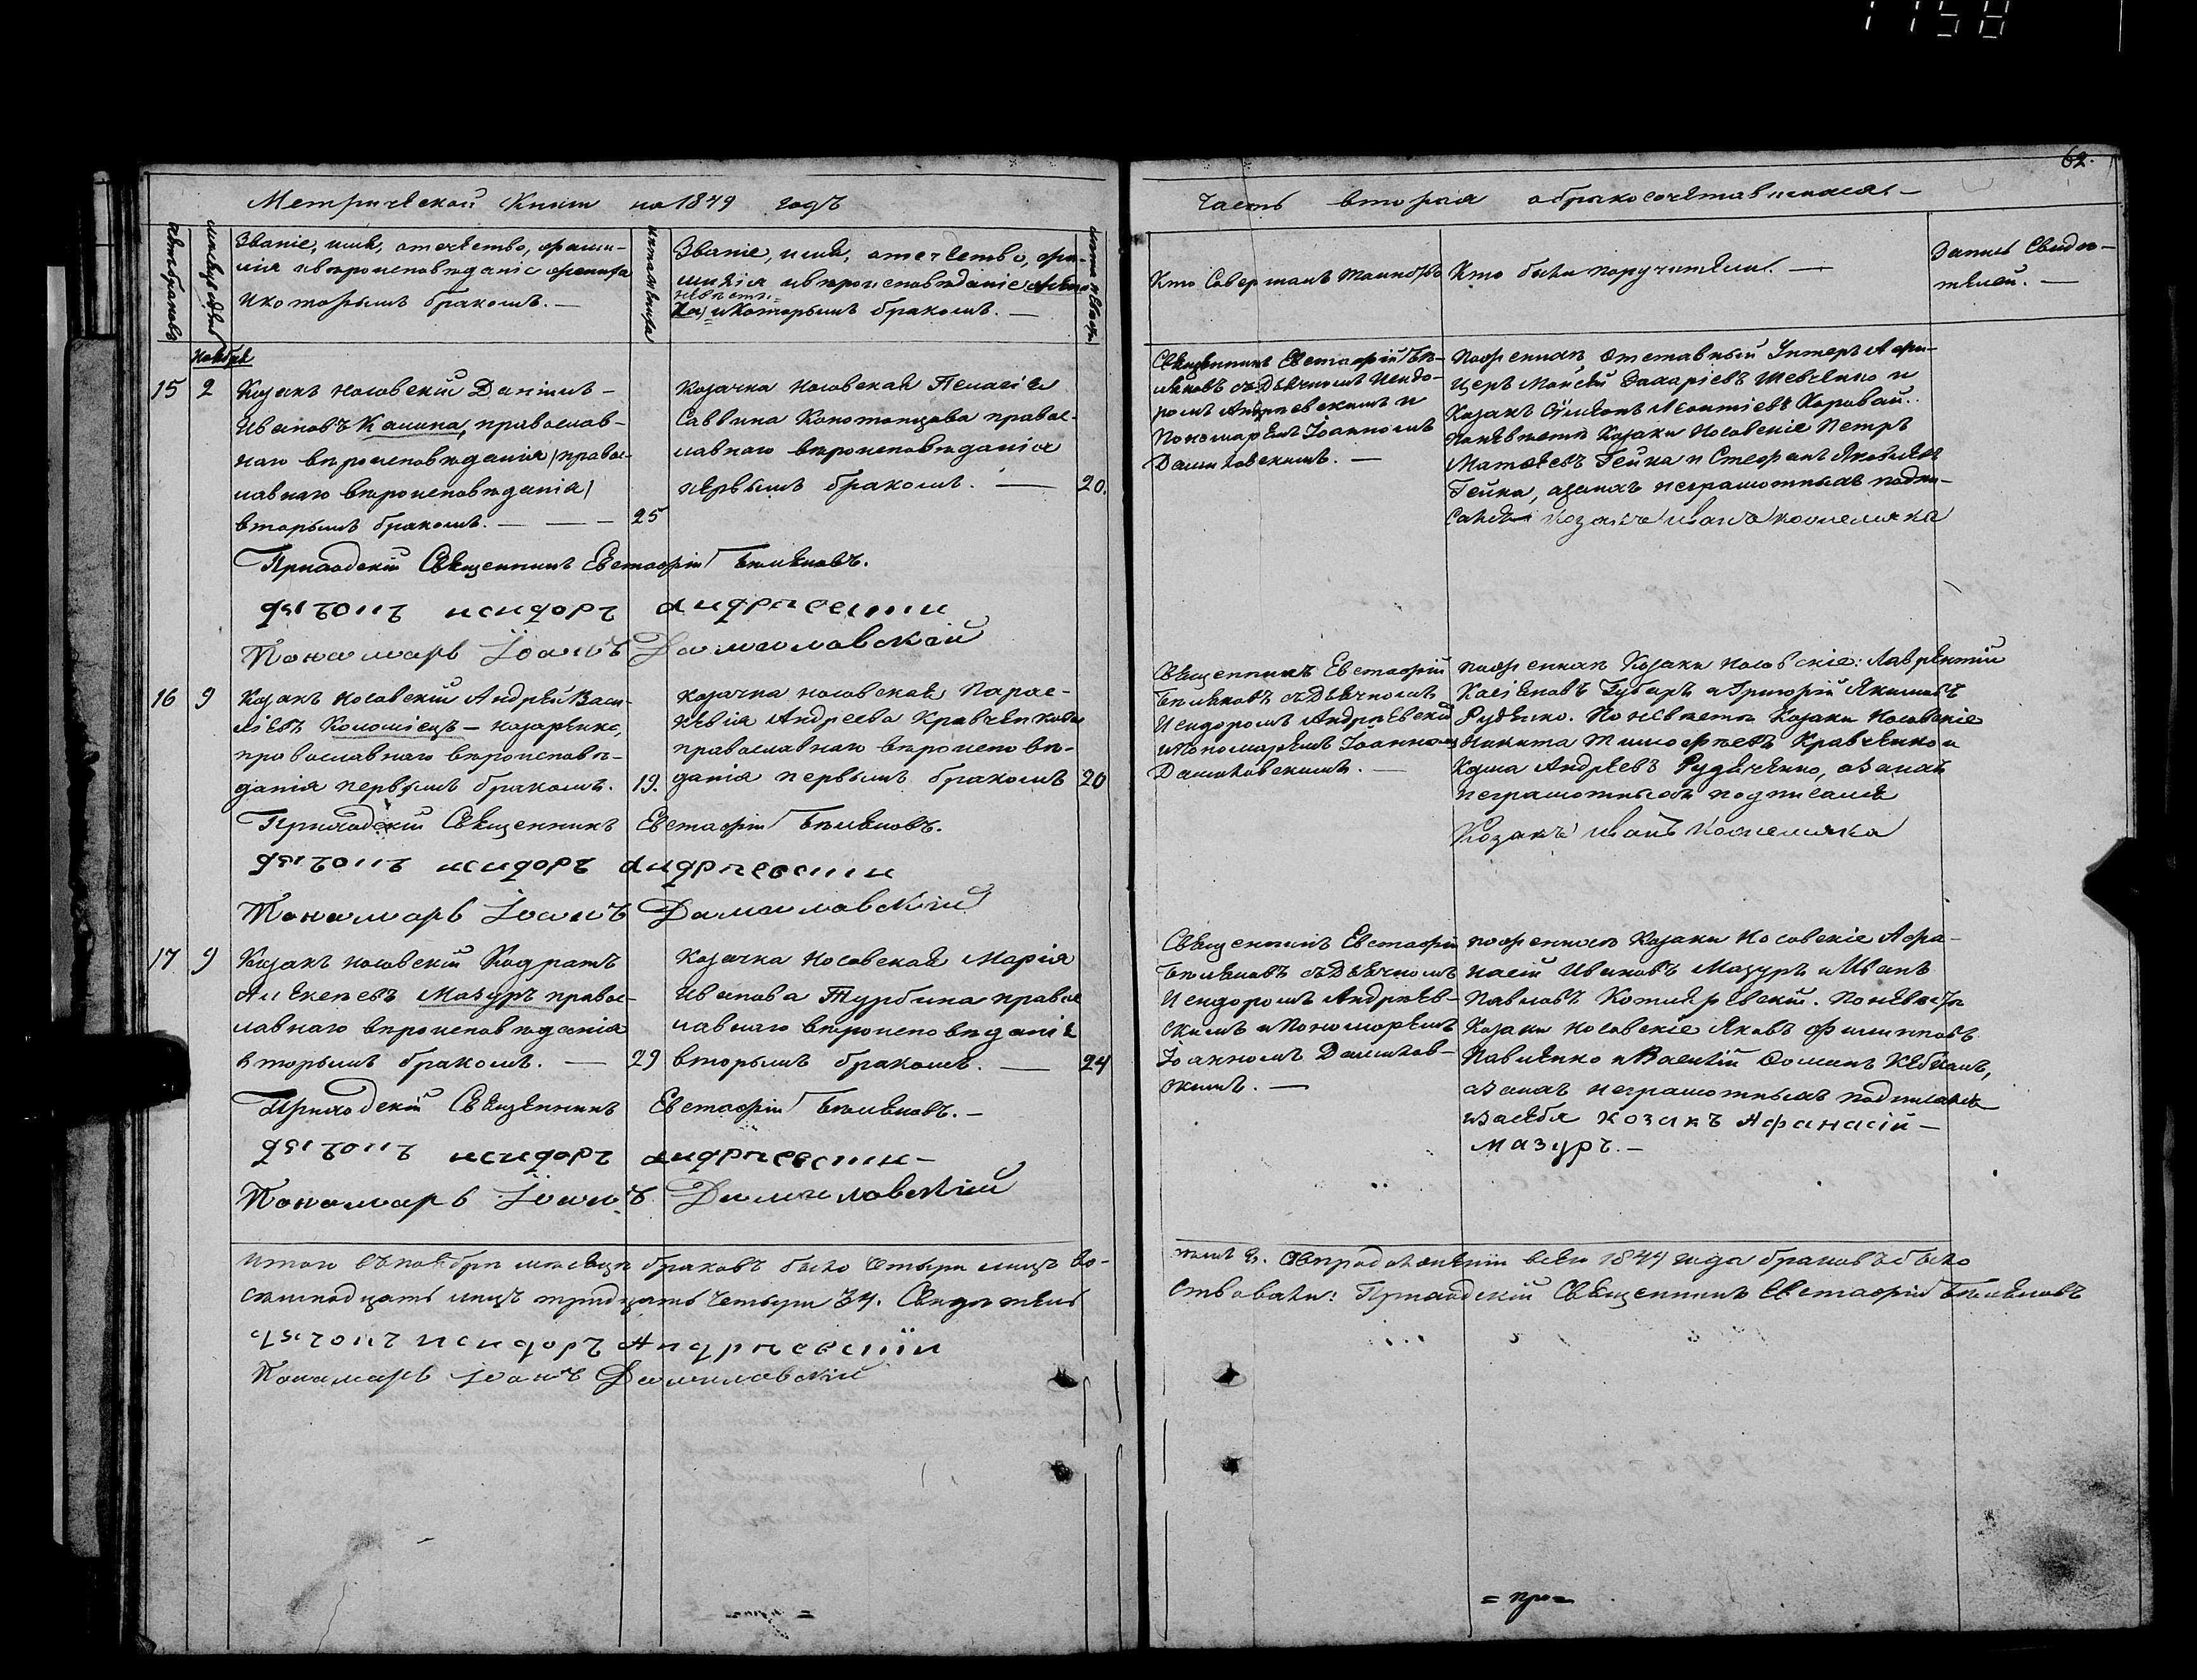 1158
62.
Метрической Книги на 1849 годъ
Часть вторая о бракосочетавшихся –
счетъ браковъ
мѣсяцъ и день
Званіе, имя, отечество, фами-
лія и вѣроисповѣданіе жениха
и которымъ бракомъ. –
лѣта жениха
Званіе, имя, отечество, фа-
милія и вѣроисповѣданіе
невѣсты
и которымъ бракомъ. –
лѣта невѣсты
Кто Совершалъ Таинство
Кто были поручители. –
Запись Свидѣ-
телей. –
Ноября
15
2
Козакъ носовскій Даніилъ –
Ивановъ Калина, православ-
наго вѣроисповѣданія /правос-
лавнаго вѣроисповѣданія/
вторымъ бракомъ. – – –
25
Козачка носовская Пелагія
Саввина Конотопцова правос-
лавнаго вѣроисповѣданія
первымъ бракомъ. –
20.
Священникъ Евстафій Бѣ-
ляковъ съ Дьячкомъ Исидо-
ромъ Андріевскимъ и
Пономаремъ Іоанномъ
Даниловскимъ. –
по женихѣ Отставный Унтеръ Офи-
церъ Моисей Захаріевъ Шевченко и
Козакъ Симеонъ Леонтіевъ Коровай.
по невѣстѣ Козаки Носовскіе Петръ
Матвѣевъ Гейка и Стефанъ Яковлевъ
Гейка, а за нихъ неграмотныхъ подпи-
сался козакъ иванъ кожемяка
Приходскій Священникъ Евстафій Бѣляковъ.
дьячокъ исидоръ андріевский
Пономарь Іоанъ Даниловский
16
9
Козакъ носовскій Андрей Васи-
ліевъ Коломіецъ – назаренко,
православнаго вѣроисповѣ-
данія первымъ бракомъ.
19.
Козачка носовская Парас-
кевія Андреева Кравченкова
православнаго вѣроисповѣ-
данія первымъ бракомъ
20
Священникъ Евстафій
Бѣляковъ съ Дьячкомъ
Исидоромъ Андріевскимъ
и Пономаремъ Іоанномъ
Даниловскимъ. –
по женихѣ Козаки носовскіе: Лаврентій
Касіяновъ Зубаръ и Григорій Якимовъ
Руденко. По невѣстѣ Козаки Носовскіе
Никита Тимофѣевъ Кравченко и
Козма Андреевъ Рудченко, а за нихъ
неграмотныхъ подписался
Козакъ иванъ кожемяка
Приходскій Священникъ Евстафій Бѣляковъ.
дьячокъ исидоръ андріевский
Пономарь Іоанъ Даниловский
17
9
Козакъ носовскій Кодратъ
Алексѣевъ Мазуръ правос-
лавнаго вѣроисповѣданія
вторымъ бракомъ. –
29
Козачка Носовская Марія
Иванова Турбина правос-
лавнаго вѣроисповѣданія
вторымъ бракомъ. –
24
Священникъ Евстафій
Бѣляковъ съ Дьячкомъ
Исидоромъ Андріев-
скимъ и Пономаремъ
Іоанномъ Данилов-
скимъ. –
по женихѣ Козаки Носовскіе Афа-
насій Ивановъ Мазуръ и Иванъ
Павловъ Котляревскій. По невѣстѣ
Козаки носовскіе Яковъ Филиповъ
Павленко и Василій
а за нихъ неграмотныхъ подписался
и за себя козакъ Афанасій –
мазуръ. –
Приходскій Священникъ Евстафій Бѣляковъ. –
дьячокъ исидоръ андріевский –
Пономарь Іоанъ Даниловскій
Итого въ ноябрѣ мѣсяцѣ браковъ было четыри лицъ во-
семь 8. А въ продолженіи всего 1849 года браковъ было
семнадцать лицъ тридцать четыри 34. Свидѣтель
ствовали: Приходскій Священникъ Евстафій Бѣляковъ
дьячокъ исидоръ Андріевскій
Пономарь Іоанъ Даниловскій
= про=